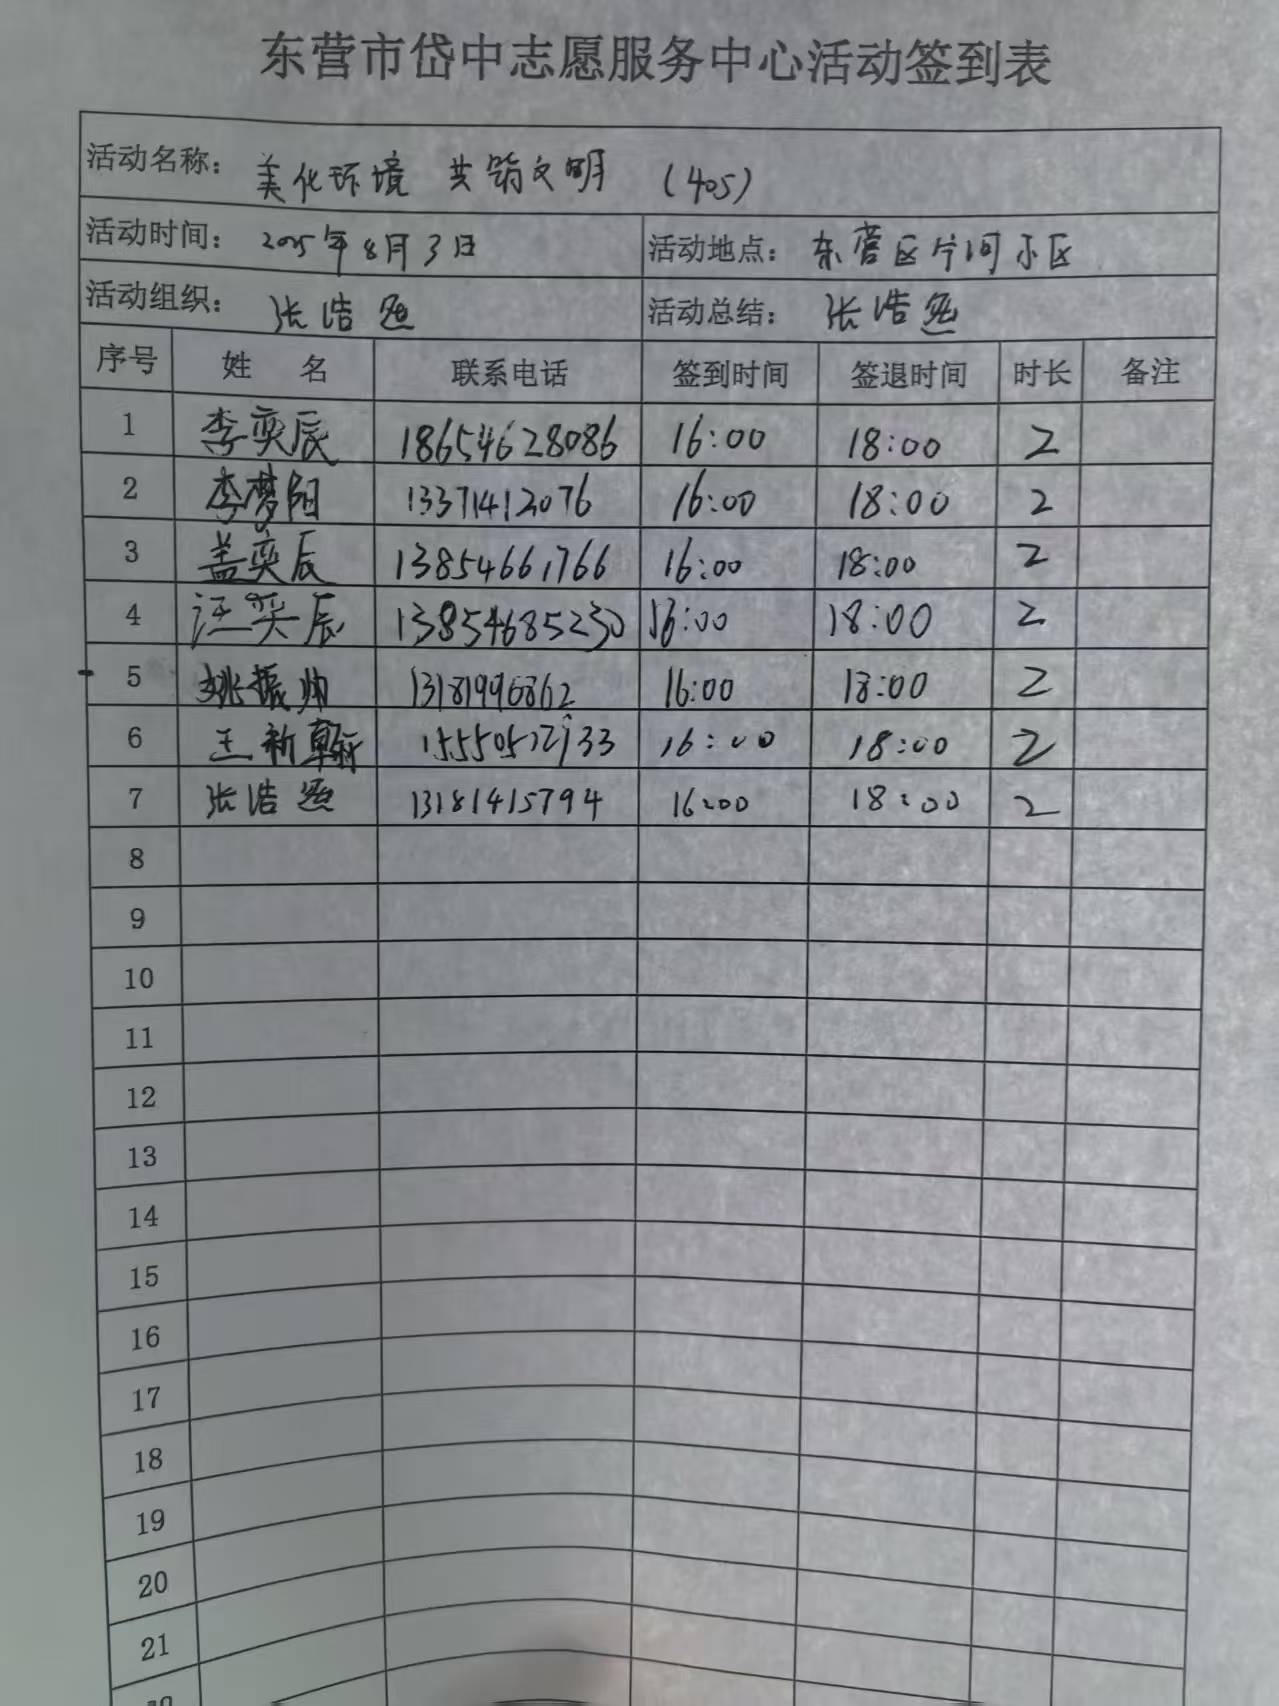 东营市岱中志愿服务中心活动签到表
活动名称: 美化环境 共筑文明 (405)
活动时间: 2025年8月3日 活动地点: 东营区片河小区
活动组织: 张浩 活动总结: 张浩
序号 姓 名 联系电话 签到时间 签退时间 时长 备注
1 李奕辰 18654628086 16:00 18:00 2
2 李梦阳 13371412076 16:00 18:00 2
3 盖奕辰 13854661766 16:00 18:00 2
4 汪奕辰 13854685230 16:00 18:00 2
5 姚振帅 13181996862 16:00 18:00 2
6 王新翰 16:00 18:00 2
7 张浩 13181415794 16:00 18:00 2
8
9
10
11
12
13
14
15
16
17
18
19
20
21